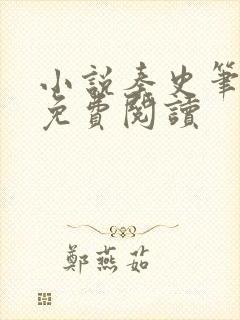 小說秦史筆
免費閱讀
鄭燕茹